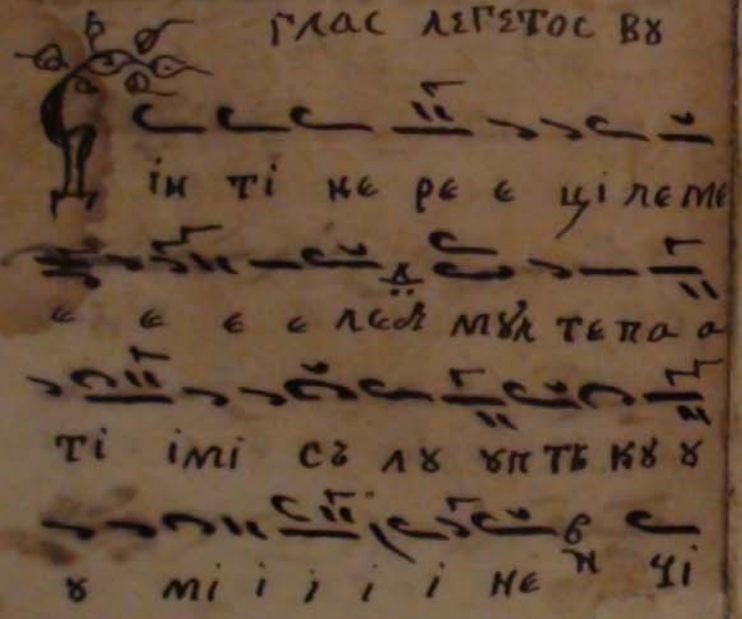 ГЛАС ЛЕГЕТОС Вꙋ
Дін ті не ре е ці ле ме
е е е е ле мꙋл те па а
ті імі съ лꙋ ꙋп тъ кꙋ ꙋ
ꙋ мі і і і і не чі